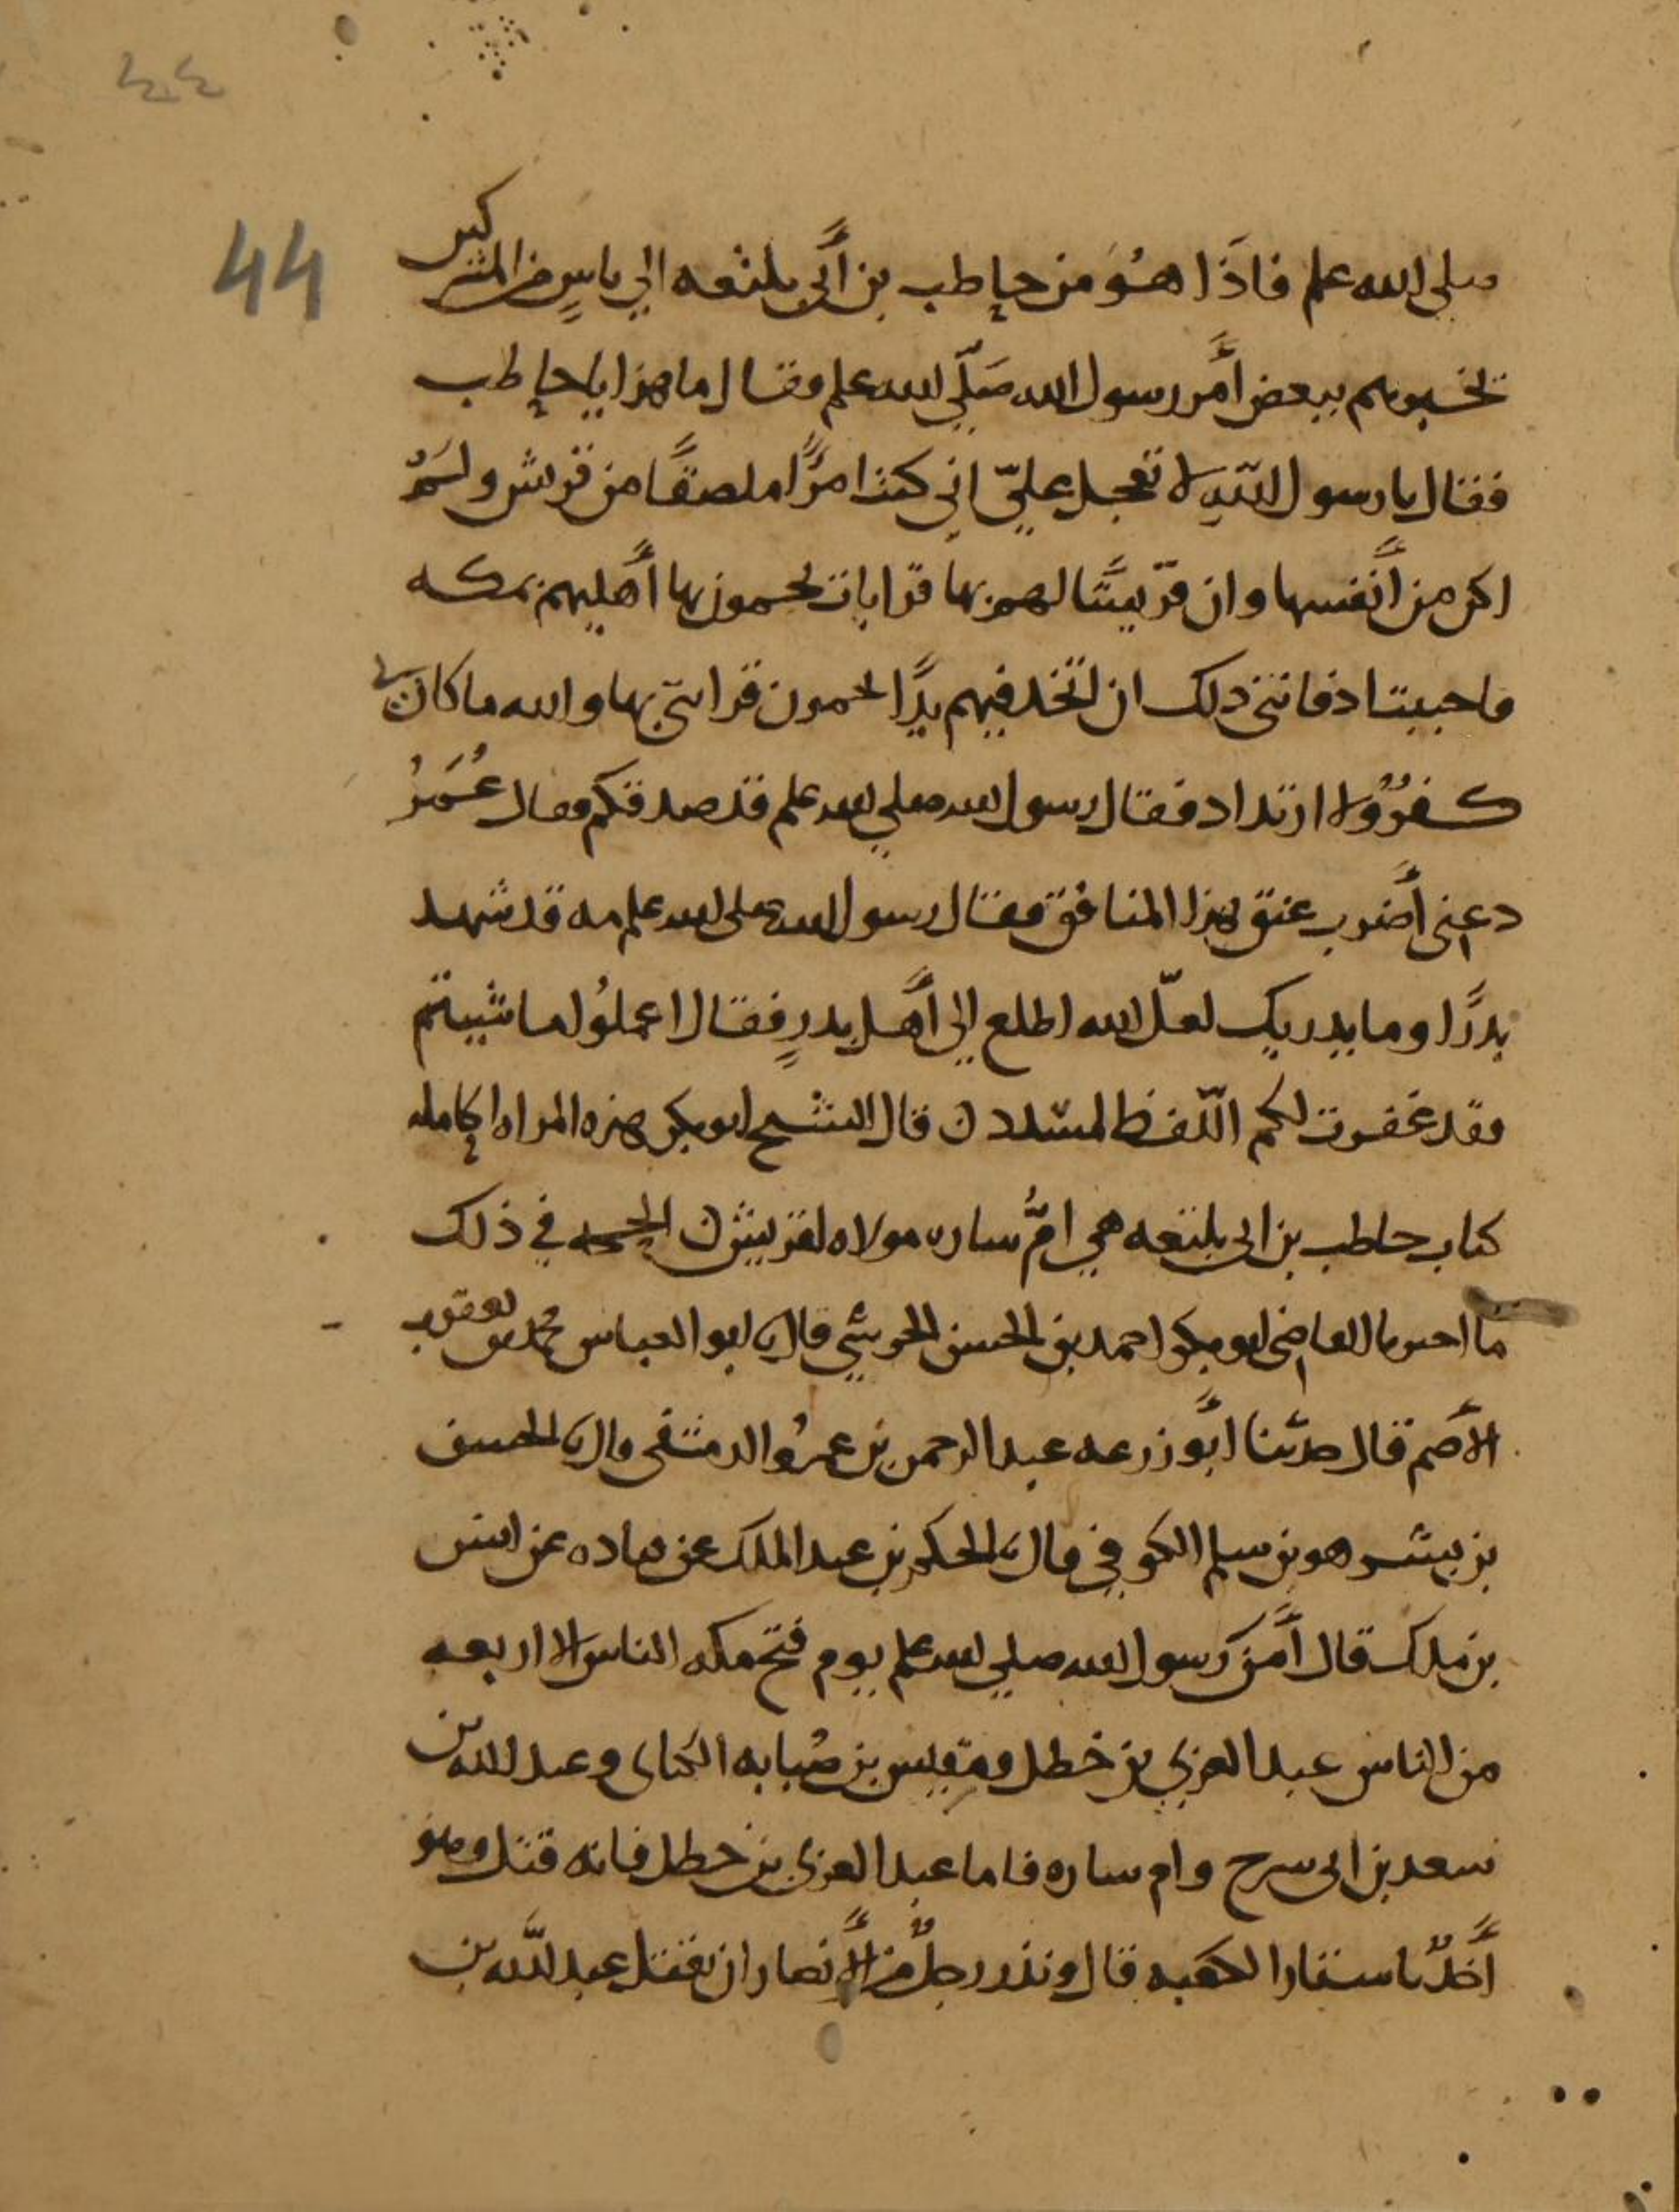 ٤٤
44
صلى الله علم فاذَا هُوَ من حاطب بن أَبي بلتعه الي ناسٍ من المشركين
تخبرهم ببعض أَمر رسول الله صَلّي الله علم وفقال ما هذا يا حاطب
فقال يا رسول اللّهِ لا تعجل عليّ اني كنت امرًا ملصقًا من قريش ولم
اكن من أَنفسها وان قريبًا لهم بها قرابات يحمون بها أَهليهم بمكه
فاحببت اد فاتني دلك ان اتخد فيهم يدًا يحمون قرابتي بها والله ما كان بي
كفرٌ ولا ارتداد فقال رسول الله صلي الله علم قد صدقكم فقال عُمَرُ
دعني أَضرب عنق هذا المنافق فقال رسول الله صلى الله علم مه قد شهد
بدرًا وما يدريك لعلّ الله اطلع الى أَهل بدرٍ فقال اعملُوا ما شيتم
فقد غفرت لكم اللّفظ لمسدد ن قال الشيخ ابو بكر هذه المراه الحامله
كتاب حاطب بن ابى بلتعه هي امُّ ساره مولاه لقريش ن الحجه في ذلك
ما اخبرنا القاضى ابو بكر احمد بن الحسن الحرشي قال نا ابو العباس محمد بن يعقوب
الأَصم قال حدّثنا أَبو زرعه عبد الرحمن بن عمرُو الدمشقى قال نا الحسن
بن بشر هو بن سلم الكوفي قال نا الحكم بن عبد الملك عن قتاده عن انس
بن ملك قال أَمن رسول الله صلي الله علم يوم فتح مكه الناس الا اربعه
من الناس عبد العزي بن خطل ومقيس بن صُبابه الكنانى وعبد الله بن
سعد بن ابى سرح وام ساره فاما عبد العزى بن خطل فانه قتل وهو
أَخذٌ باستار الكعبه قال ونذر رجلٌ من الأَنصار ان يقتل عبد اللَّه بن